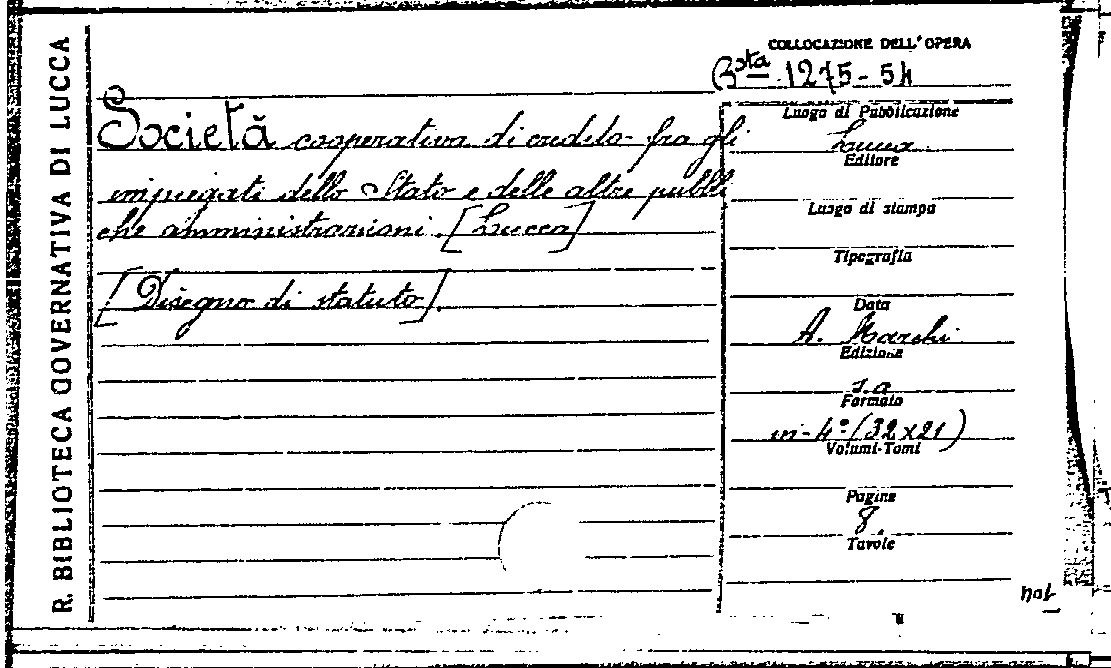 R. BIBLIOTECA GOVERNATIVA DI LUCCA
COLLOCAZIONE DELL'OPERA
Bsta 1275-54
Società cooperativa di credito fra gli
impiegati dello Stato e delle altre pubbli
che amministrazioni. [Lucca]
[Disegno di statuto].
Luogo di Pubblicazione
Lucca
Editore
Luogo di stampa
Tipografia
Data
A. Marchi
Edizione
s.a
Formato
in-4º (32x21)
Volumi-Tomi
Pagine
8
Tavole